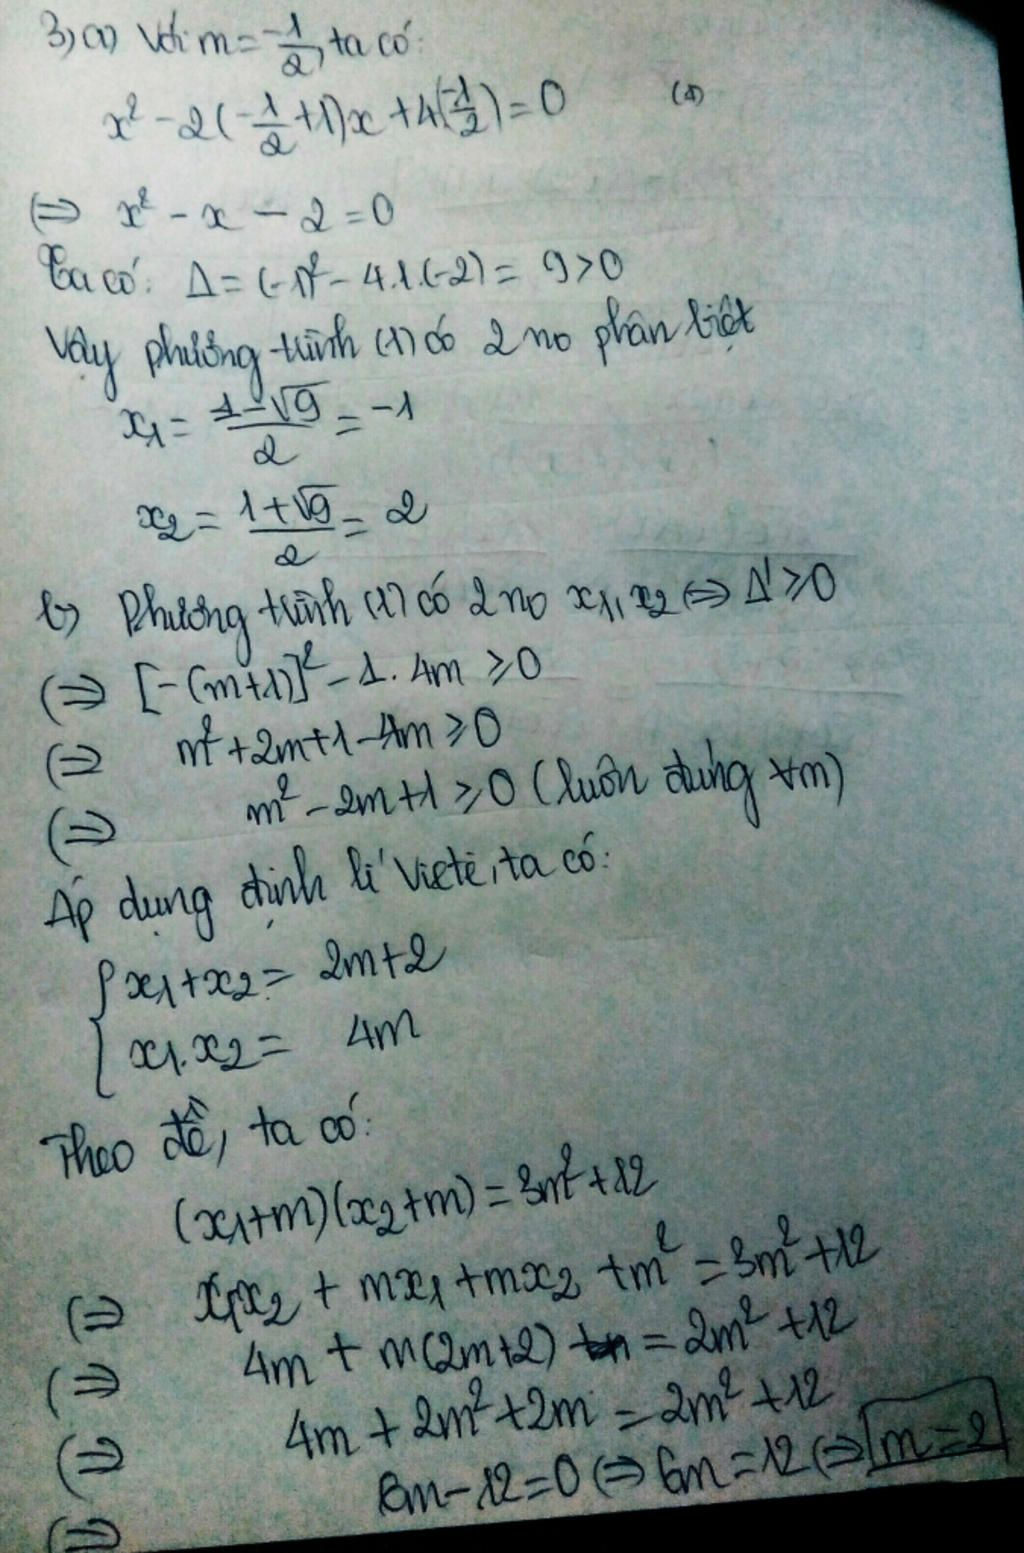 3) a) Với m = -1/2, ta có:
x² - 2(-1/2 + 1)x + 4(-1/2) = 0 (1)
(⇒ x² - x - 2 = 0
Ta có: Δ = (-1)² - 4.1.(-2) = 9 > 0
Vậy phương trình (1) có 2 no phân biệt
x₁ = (1 - √9)/2 = -1
x₂ = (1 + √9)/2 = 2
b) Phương trình (1) có 2 no x₁, x₂ ⇔ Δ' ≥ 0
(⇒ [-(m+1)]² - 1. 4m ≥ 0
(⇒ m² + 2m + 1 - 4m ≥ 0
(⇒ m² - 2m + 1 ≥ 0 (luôn đúng ∀m)
Áp dụng định lí Viète, ta có:
{ x₁ + x₂ = 2m + 2
x₁. x₂ = 4m
Theo đề, ta có:
(x₁+m)(x₂+m) = 3m² + 12
(⇒ x₁x₂ + mx₁ + mx₂ + m² = 3m² + 12
(⇒ 4m + m(2m+2) = 2m² + 12
(⇒ 4m + 2m² + 2m = 2m² + 12
(⇒ 6m - 12 = 0 (⇒ 6m = 12 (⇒ m = 2
(⇒